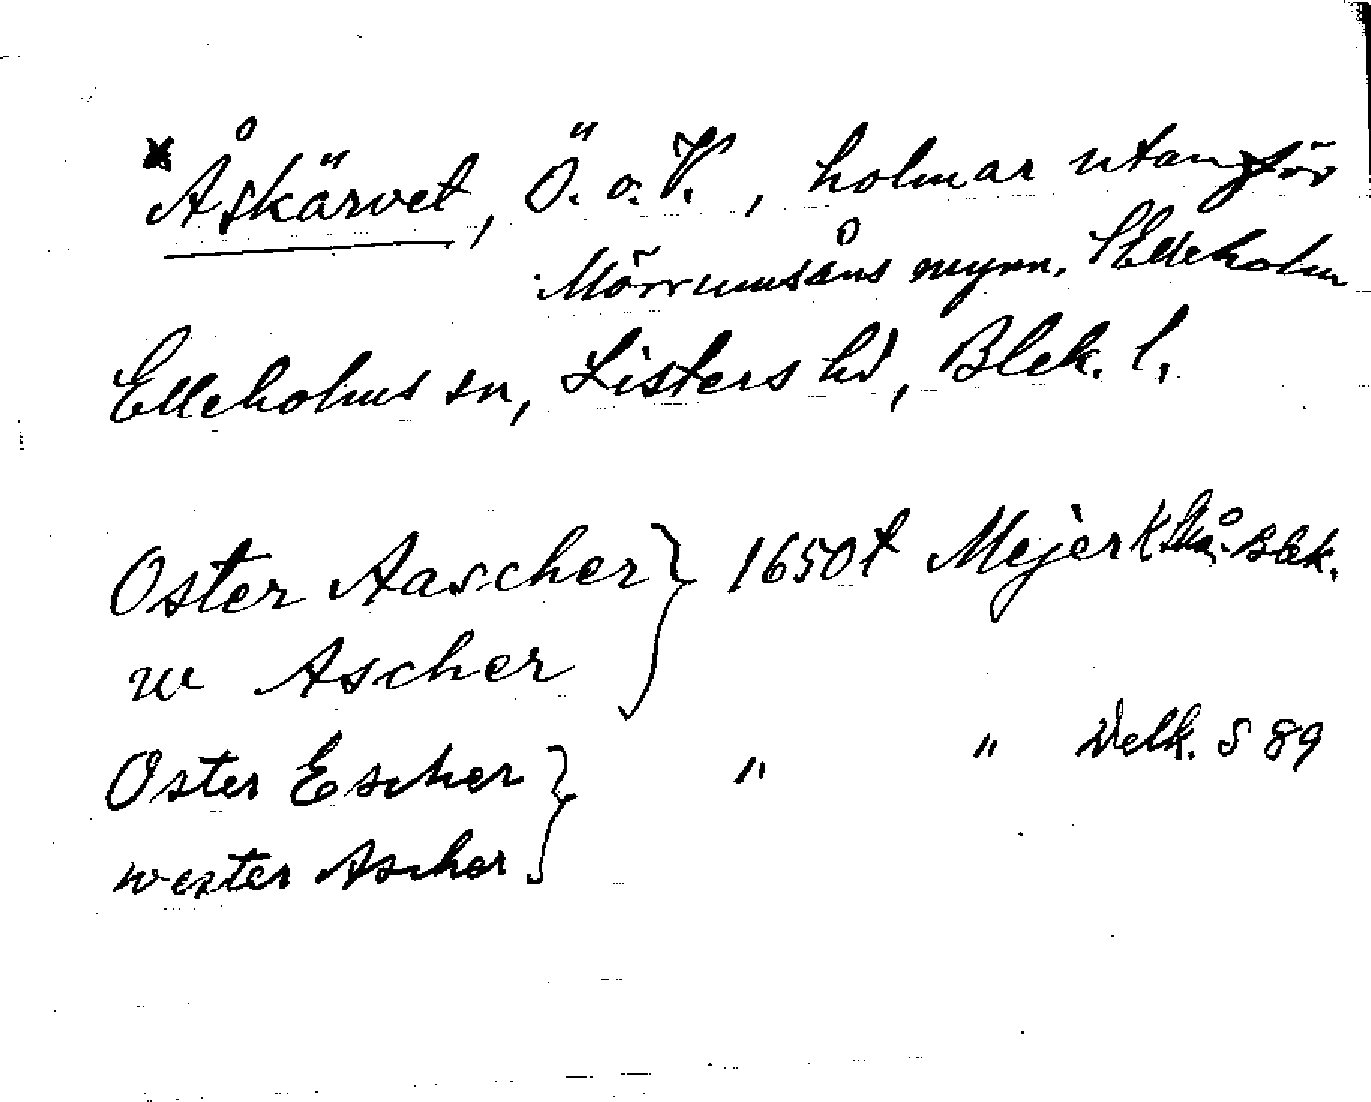 *Åskärvet, Ö. o. V., holmar utanför
Mörrumsåns mynn. Elleholm
Elleholms sn, Listers hd, Blek. l.
Oster Aascher } 1650t Mejer K Skå. Blek.
w Ascher
Oster Escher } " " Delk. S 89
wester Ascher